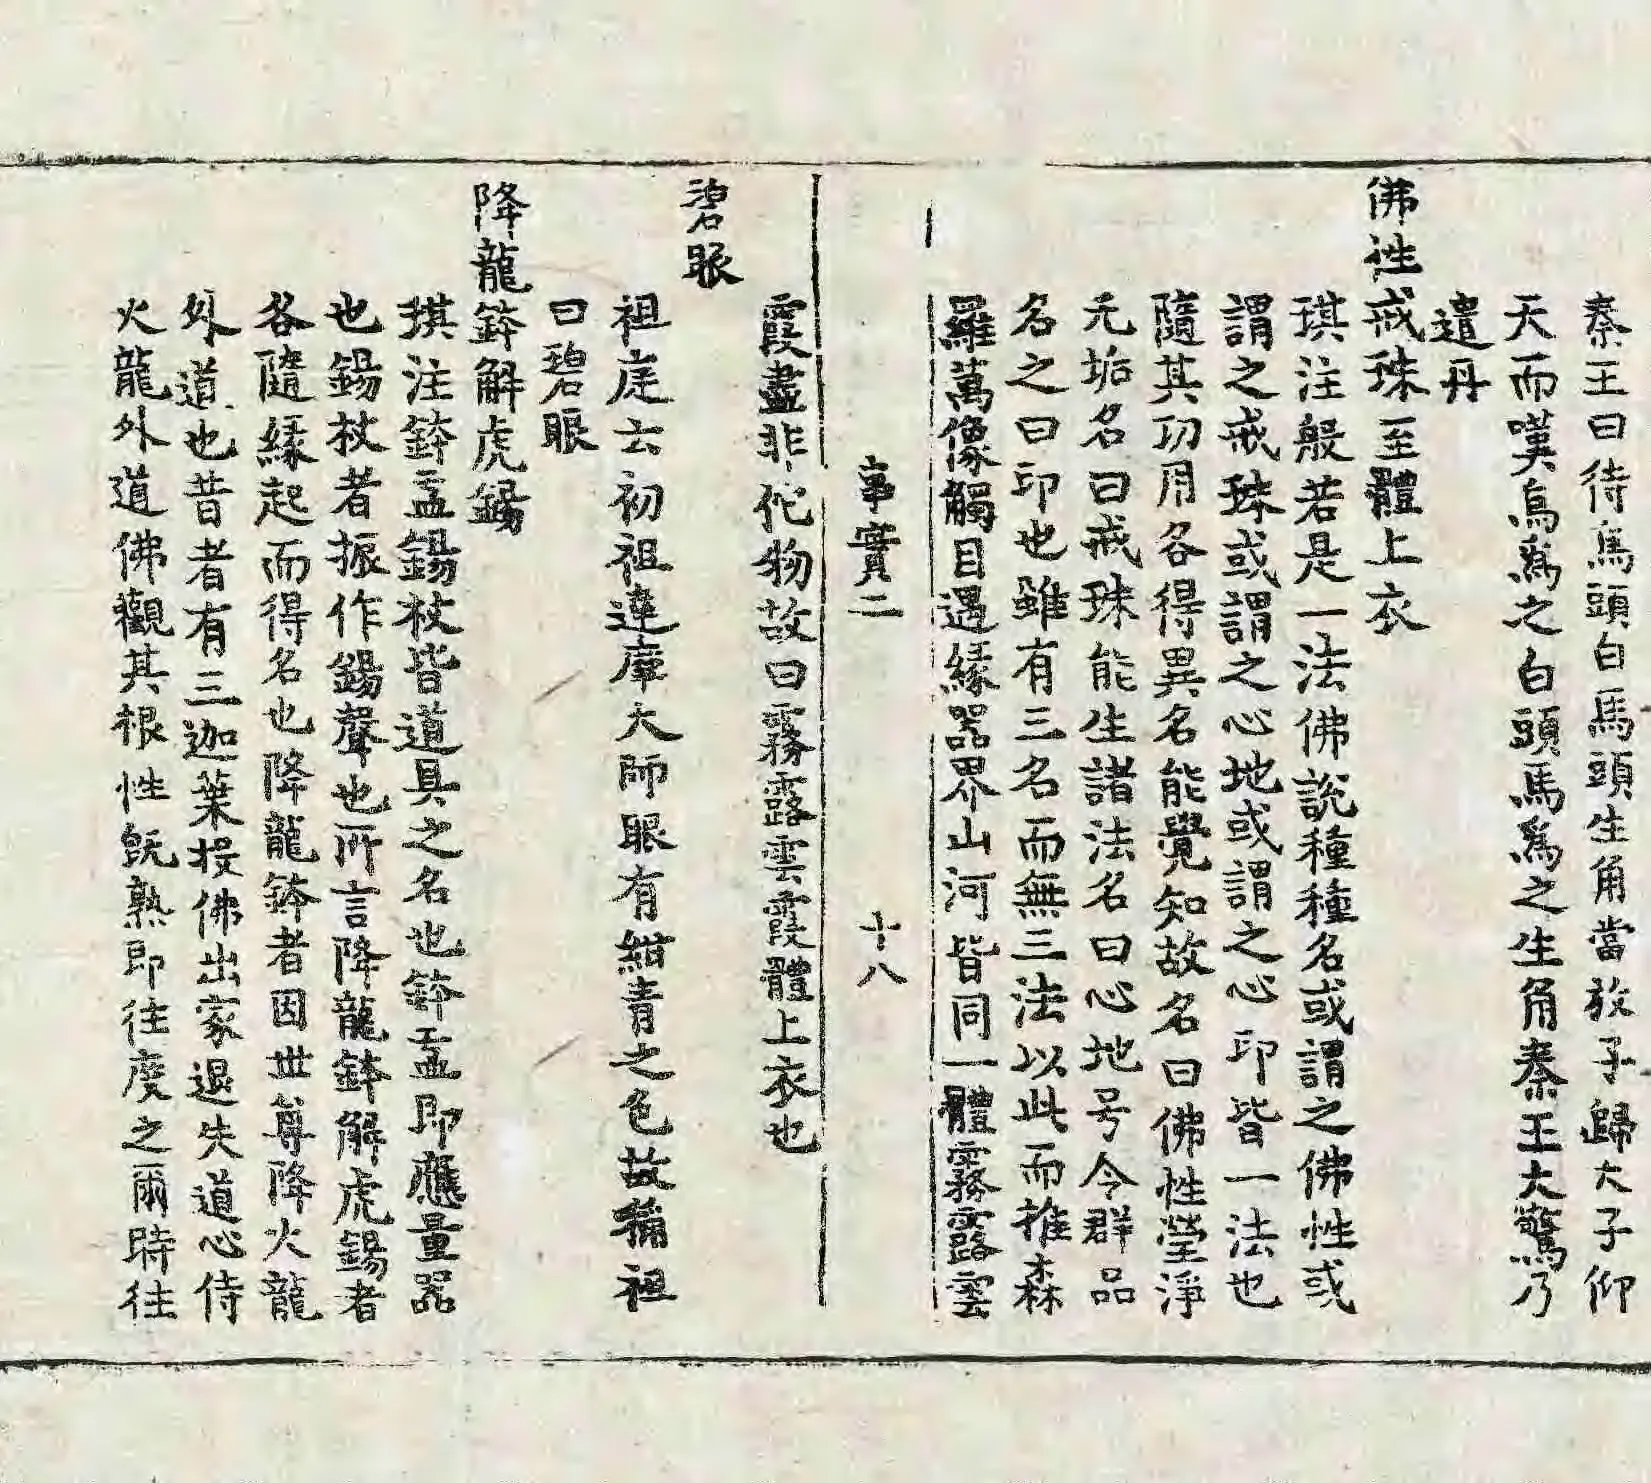 秦王曰待烏頭白馬頭生角當放子歸太子仰
天而嘆烏爲之白頭馬爲之生角秦王大驚乃
遣丹
佛性戒珠至體上衣
琪注般若是一法佛說種種名或謂之佛性或
謂之戒珠或謂之心地或謂之心印皆一法也
隨其功用各得異名能覺知故名曰佛性瑩淨
无垢名曰戒珠能生諸法名曰心地号令群品
名之曰印也雖有三名而無三法以此而推森
羅萬像觸目遇緣器界山河皆同一體霧露雲
事實二 十八
霞盡非佗物故曰霧露雲霞體上衣也
碧眼
祖庭云初祖達摩大師眼有紺青之色故稱祖
曰碧眼
降龍鉢解虎錫
琪注鉢盂錫杖皆道具之名也鉢盂即應量器
也錫杖者振作錫聲也所言降龍鉢解虎錫者
各隨緣起而得名也降龍鉢者因世尊降火龍
外道也昔者有三迦葉投佛出家退失道心侍
火龍外道佛觀其根性旣熟即往度之爾時往